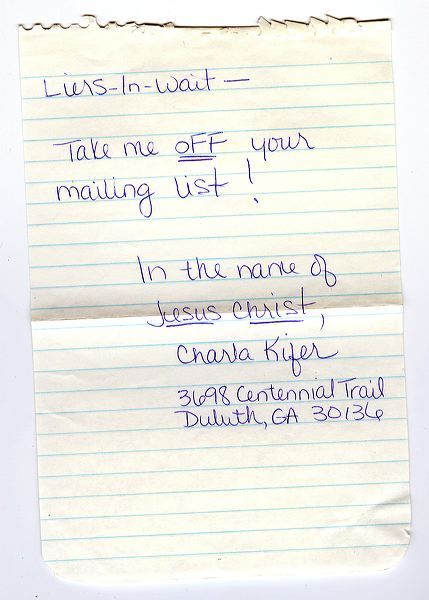 Liers-In-Wait —
Take me OFF your
mailing list!
In the name of
Jesus Christ,
Charla Kifer
3698 Centennial Trail
Duluth, GA 30136